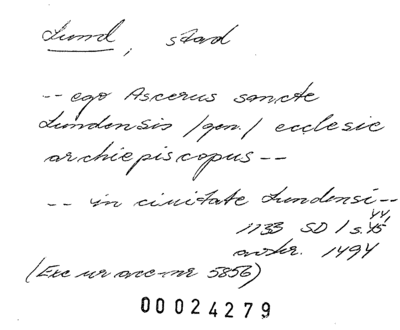 Lund, stad
-- ego Ascerus sancte
Lundensis /gen./ ecclesie
archiepiscopus --
-- in ciuitate Lundensi --
44,
1133 SD 1 s. 45
avskr. 1494
(Exc ur acc-nr 5856)
00024279